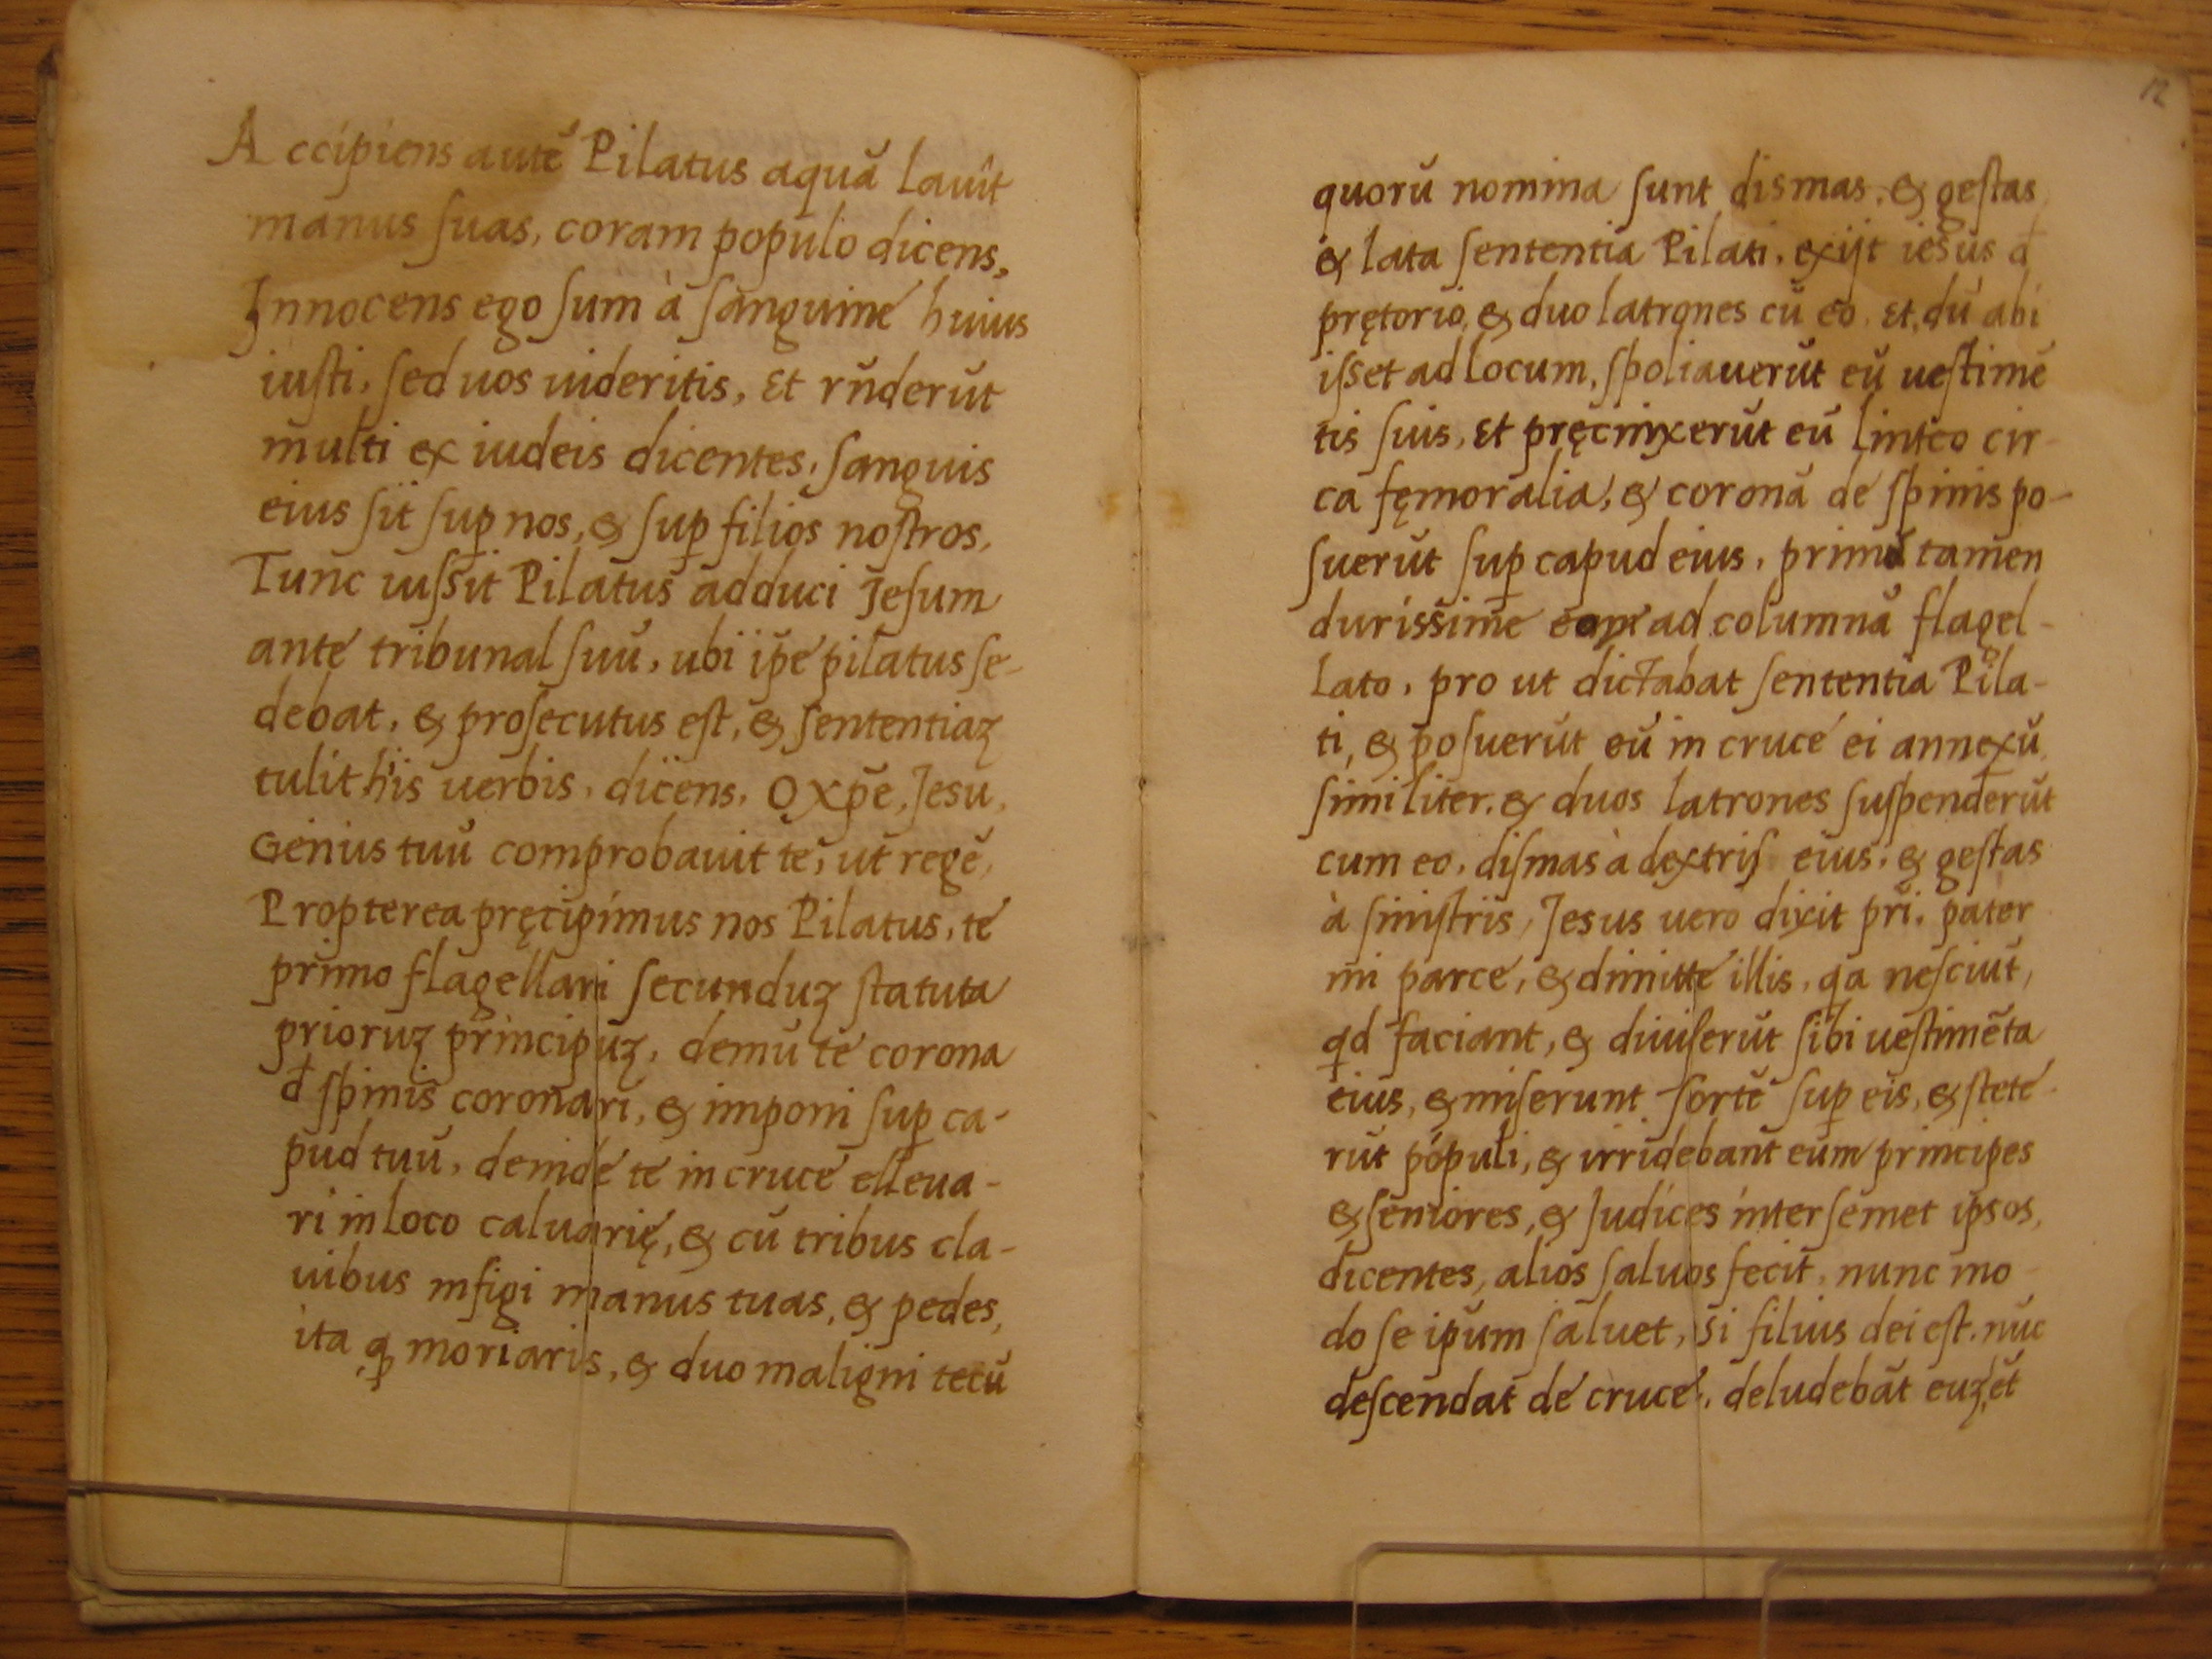 Accipiens autē Pilatus aquā lauit
manus ſuas, coram populo dicens,
Innocens ego ſum à ſanguine huius
iuſti, ſed uos uideritis, Et rn̄derūt
multi ex iudeis dicentes, ſanguis
eius ſit ſuꝑ nos, & ſuꝑ filios noſtros,
Tunc iuſsit Pilatus adduci Jeſum
ante tribunal ſuū, ubi ip̄e pilatus ſe-
debat, & proſecutus eſt, & ſententiaꝫ
tulit his uerbis, dicens, O Xp̄e, Jesu,
Genius tuū comprobauit te, ut regē,
Propterea pręcipimus nos Pilatus, te
primo flagellari ſecunduꝫ ſtatuta
prioruꝫ principuꝫ, demū te corona
đ ſpinis coronari, & imponi ſuꝑ ca-
pud tuū, deinde te in cruce elleua-
ri in loco caluarię, & cū tribus cla-
uibus infigi manus tuas, & pedes,
ita ꝙ moriaris, & duo maligni tecū
12
quorū nomina ſunt dismas, & geſtas
& lata ſententia Pilati, exijt iesus đ
prętorio, & duo latrones cū eo, Et, dū abi
iſset ad locum, ſpoliauerūt eū ueſtimē
tis ſuis, Et pręcinxerūt eū linteo cir-
ca fęmoralia, & coronā de ſpinis po-
ſuerūt ſuꝑ capud eius, primū tamen
durissime ad columnā flagel-
lato, pro ut dictabat ſententia Pila-
ti, & poſuerūt eū in cruce ei annexū
ſimiliter, & duos latrones ſuſpenderūt
cum eo, diſmas à dextriſ eius, & geſtas
à ſiniſtris, Jesus uero dixit pr̄i, pater
mi parce, & dimitte illis, qa neſciūt,
qd faciant, & diuiſerūt ſibi ueſtimēta
eius, & miſerunt ſortē ſuꝑ eis, & ſtete-
rūt pópuli, & irridebant eum principes
& ſeniores, & Judices inter ſemet ipsos,
dicentes, alios ſaluos fecit, nunc mo-
do se ip̄um ſaluet, si filius dei eſt, nūc
deſcendat de cruce, deludebāt euꝫ, et